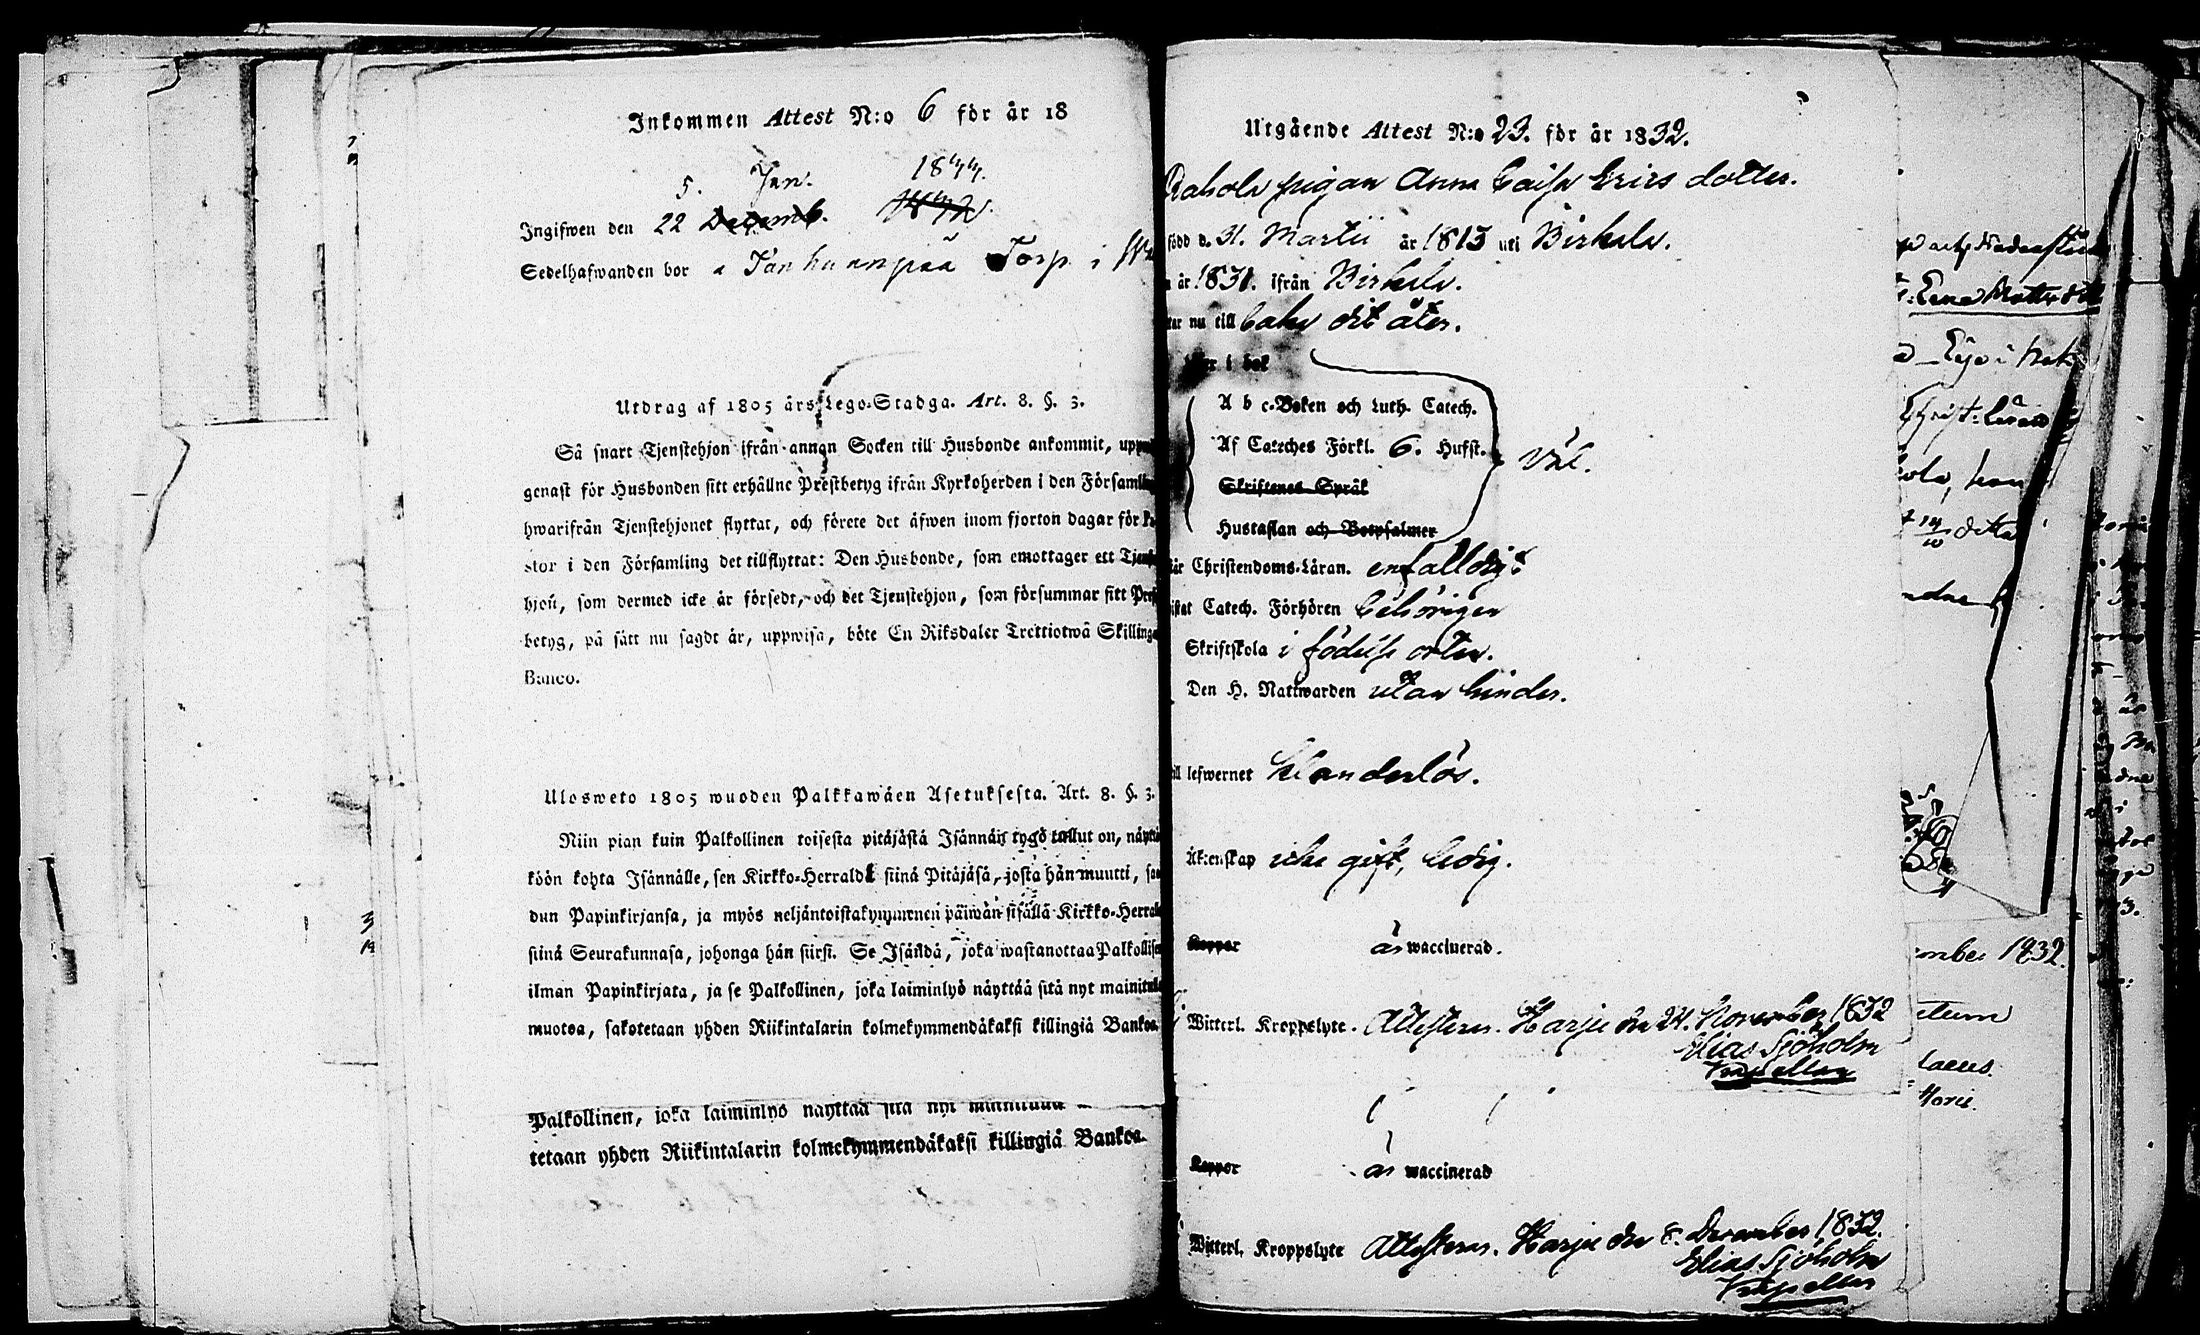 Inkommen Attest N:o 6 för år 18
5. Jan. 1844.
Ingifwen den 22 Decemb. 1832.
Sedelhafwanden bor a Tanhuanpää Torp i
Utdrag af 1805 års Lego-Stadga. Art. 8. §. 3.
Så snart Tjenstehjon ifrån annan Socken till Husbonde ankommit, upp
genast för Husbonden sitt erhållne Prestbetyg ifrån Kyrkoherden i den Församlin
hwarifrån Tjenstehjonet flyttat, och förete det äfwen inom fjorton dagar för
stor i den Församling det tillflyttat: Den Husbonde, som emottager ett Tjenst
hjon, som dermed icke är försedt, och det Tjenstehjon, som försummar sitt Prest
betyg, på sätt nu sagdt är, uppwisa, böte En Riksdaler Trettiotwå Skillinga
Banco.
Ulosweto 1805 wuoden Palkkawäen Asetuksesta. Art. 8. §. 3.
Niin pian kuin Palkollinen toisesta pitäjästä Isännän tygö tullut on, näyttä
köön kohta Isännälle, sen Kirkko-Herralda siinä Pitäjäsä, josta hän muutti, saa
dun Papinkirjansa, ja myös neljäntoistakymmenen päiwän sisällä Kirkko-Herral
siinä Seurakunnasa, johonga hän siirsi. Se Isändä, joka wastanottaa Palkollise
ilman Papinkirjata, ja se Palkollinen, joka laiminlyö näyttää sitä nyt mainitul
muotoa, sakotetaan yhden Riikintalarin kolmekymmendäkaksi killingiä Bankoa.
Palkollinen, joka laiminlyö näyttää sitä nyt mainitulla
tetaan yhden Riikintalarin kolmekymmendäkaksi killingiä Bankoa.
Utgående Attest N:o 23. för år 1832.
Rahola pigan Anna Caisa Erics dotter.
född d. 31. Martii år 1813 uti Birkala.
år 1831. ifrån Birkala.
ter nu till Cala dit åter.
i bok
A b c-Boken och Luth. Catech.
Af Cateches Förkl. 6. Hufst. Väl.
Skriftenes Språk
Hustaflan och Botpsalmer
är Christendoms-Läran. enfalldigt
istat Catech. Förhören behörigen
Skriftskola i födelse orten.
Den H. Nattwarden utan hinder.
till lefwernet klanderlös.
Äktenskap icke gift, ledig.
Koppor är waccinerad.
Witterl. Kroppslyte. Attesteras. Harju den 24. November 1832
Elias Sjöholm
Capellan
Koppor är waccinerad
Witterl. Kroppslyte Attesteras. Harju den 8. December 1832.
Elias Sjöholm
Capellan
mber 1832.